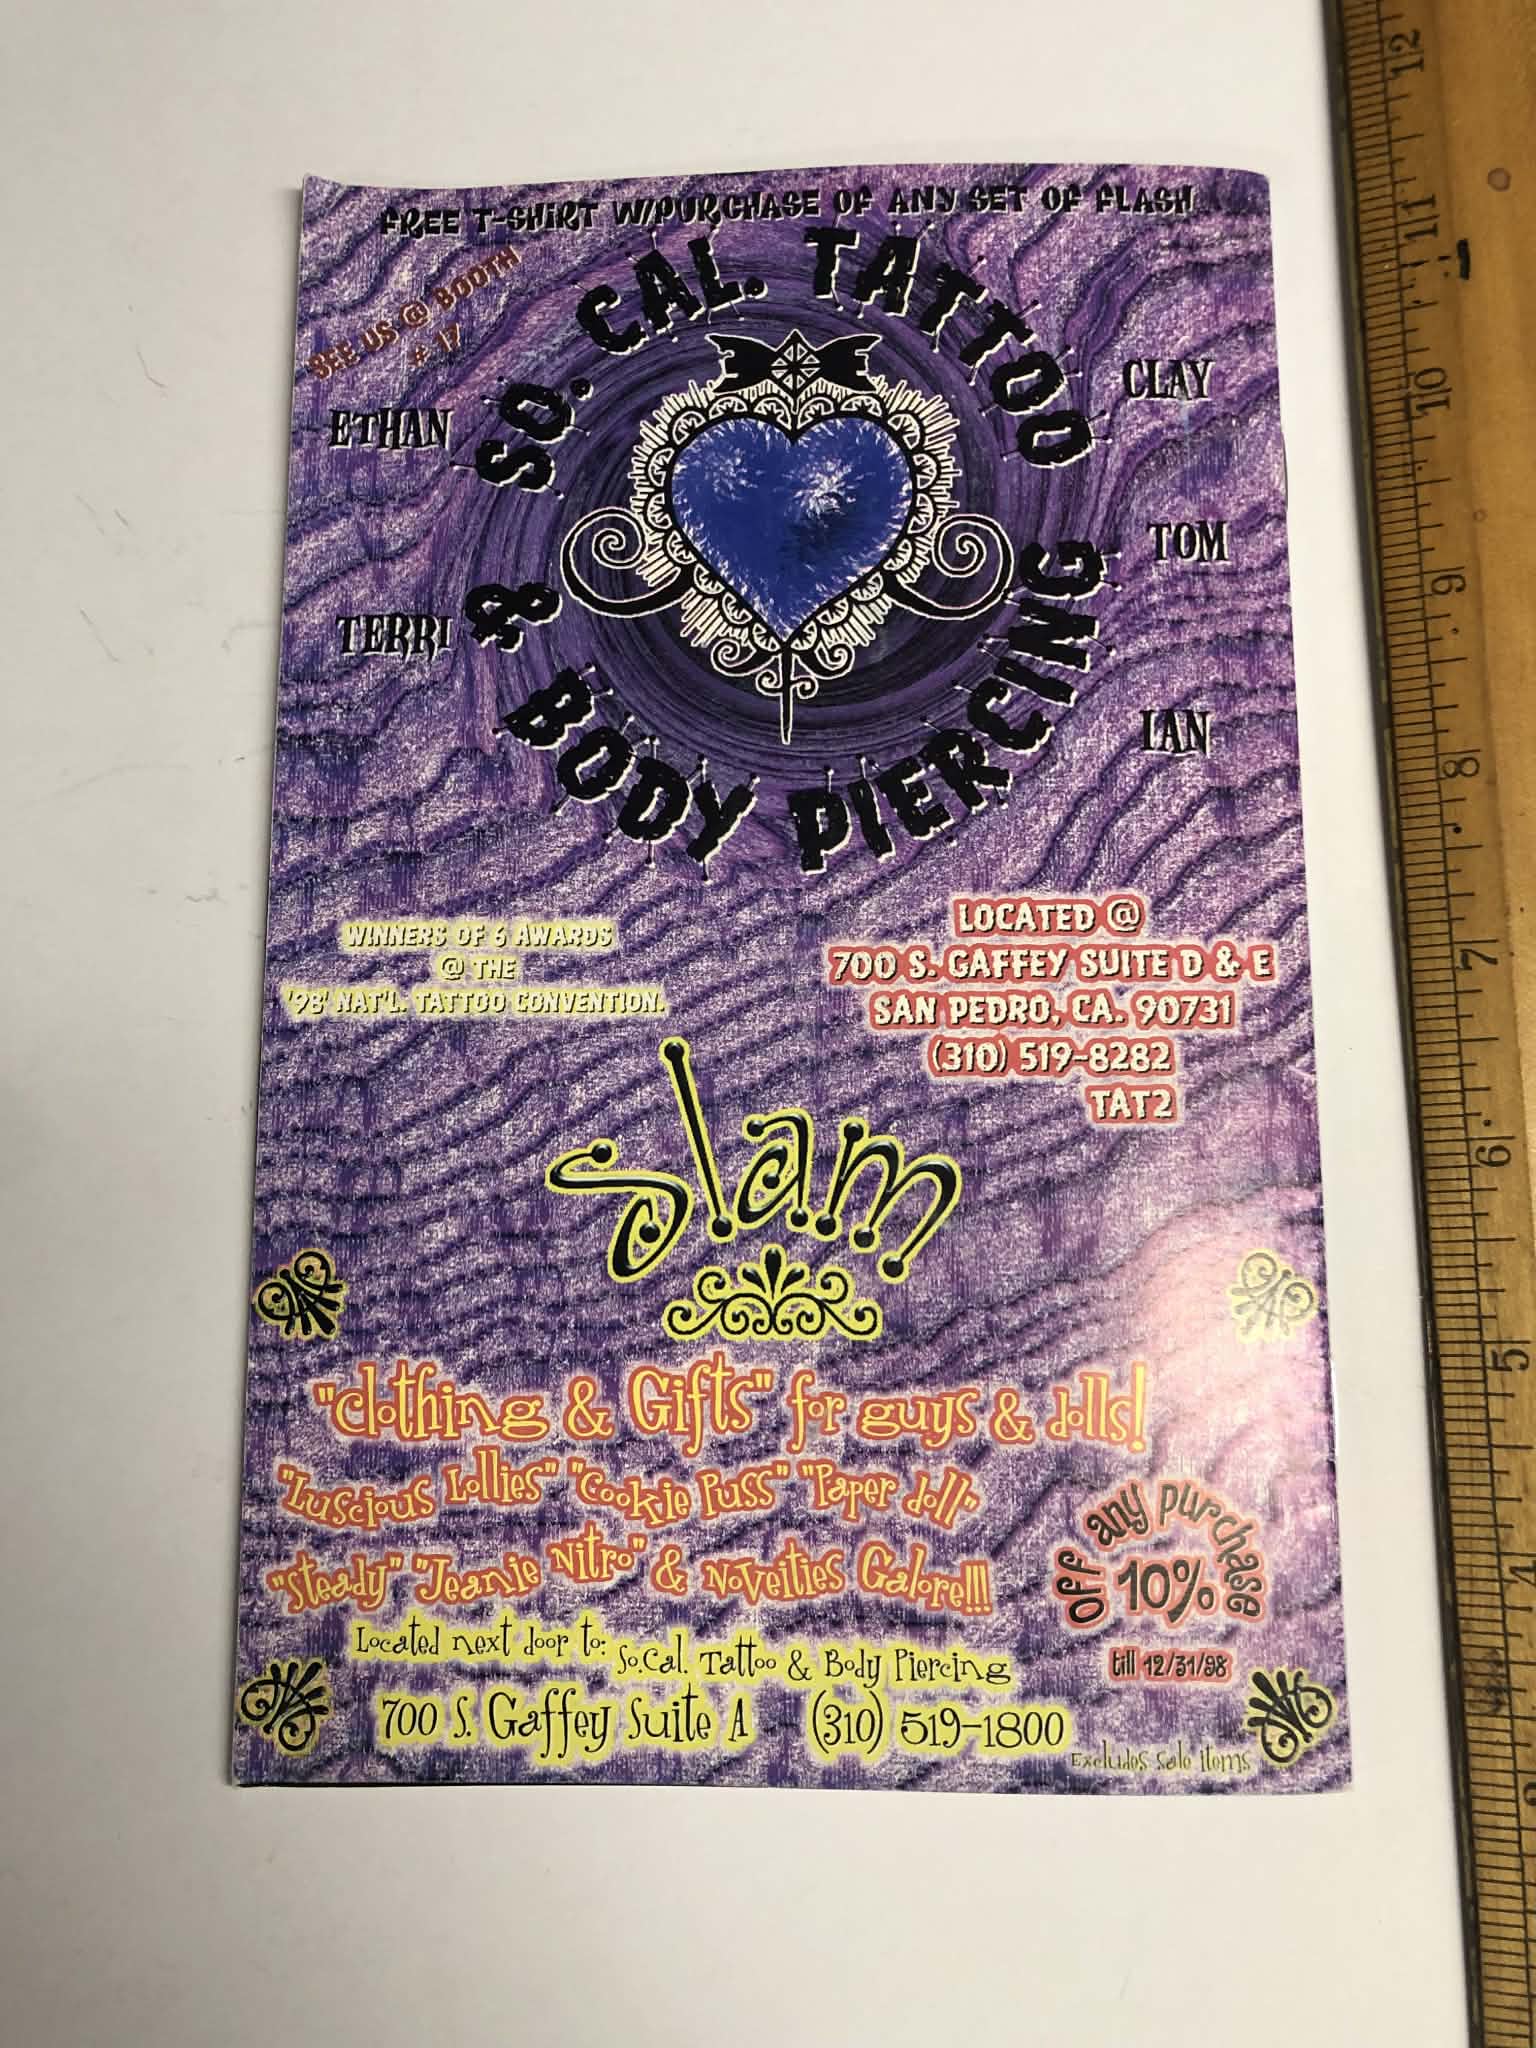 FREE T-SHIRT W/PURCHASE OF ANY SET OF FLASH
SEE US @ BOOTH
# 17
SO. CAL. TATTOO
& BODY PIERCING
ETHAN
TERRI
CLAY
TOM
IAN
WINNERS OF 6 AWARDS
@ THE
'98' NAT'L. TATTOO CONVENTION.
LOCATED @
700 S. GAFFEY SUITE D & E
SAN PEDRO, CA. 90731
(310) 519-8282
TAT2
slam
"clothing & Gifts" for guys & dolls!
"Luscious Lollies" "Cookie Puss" "Paper doll"
"Steady" "Jeanie Nitro" & Novelties Galore!!!
off any purchase
10%
till 12/31/98
Located next door to: So.Cal. Tattoo & Body Piercing
700 S. Gaffey Suite A (310) 519-1800
Excludes sale items
12
11
10
9
8
7
6
5
4